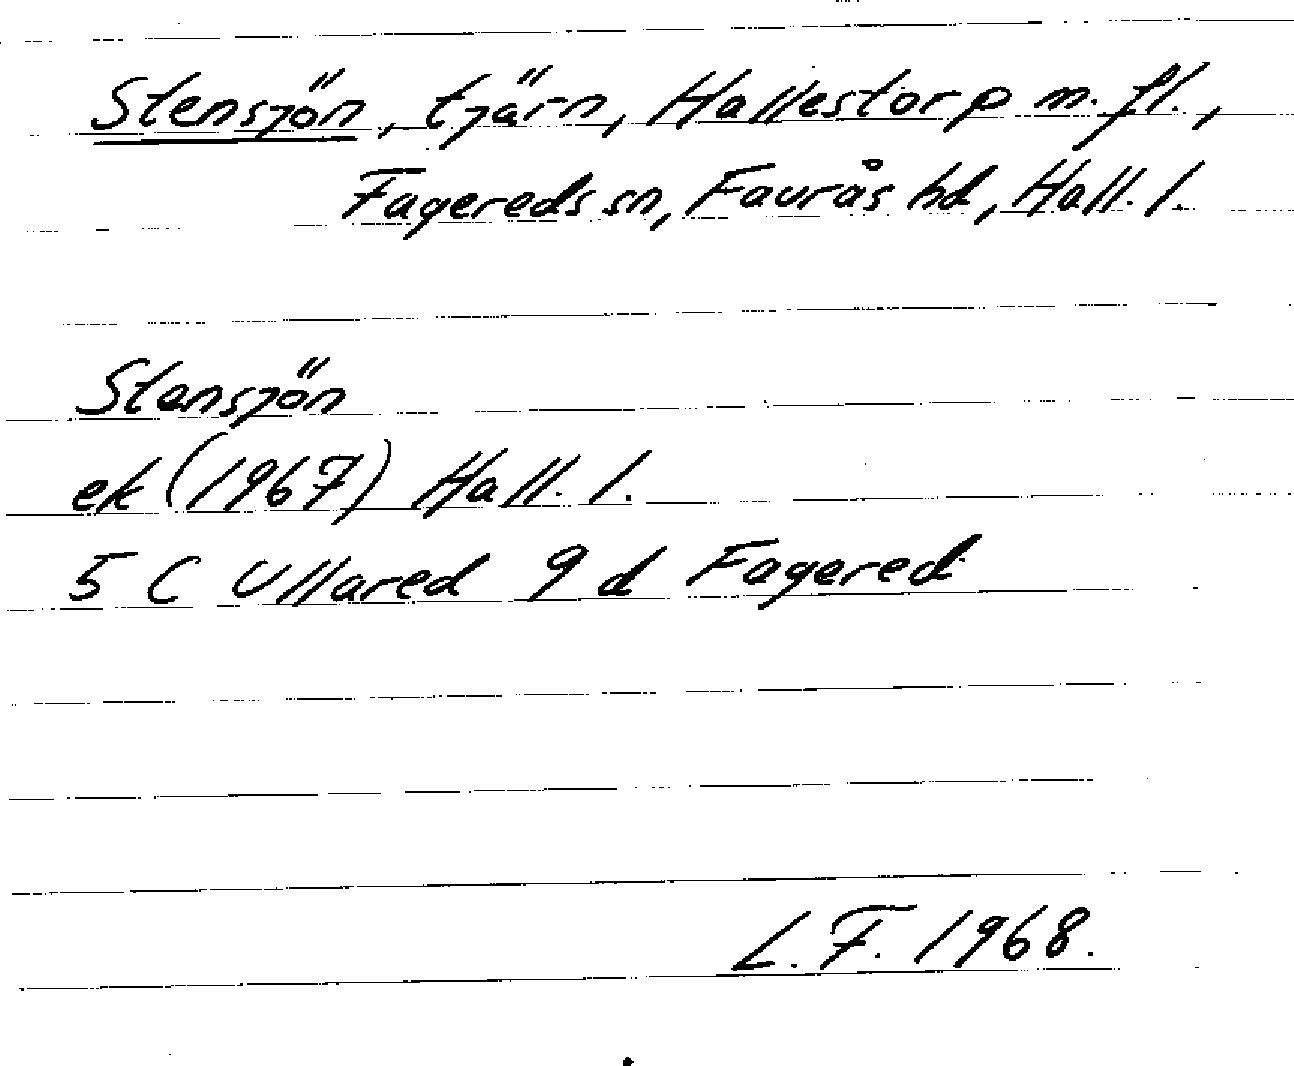 Stensjön, tjärn, Hallestorp m. fl.,
Fagereds sn, Faurås hd, Hall. l.
Stensjön
ek (1967) Hall. l.
5 C Ullared 9 d Fagered
L. F. 1968.